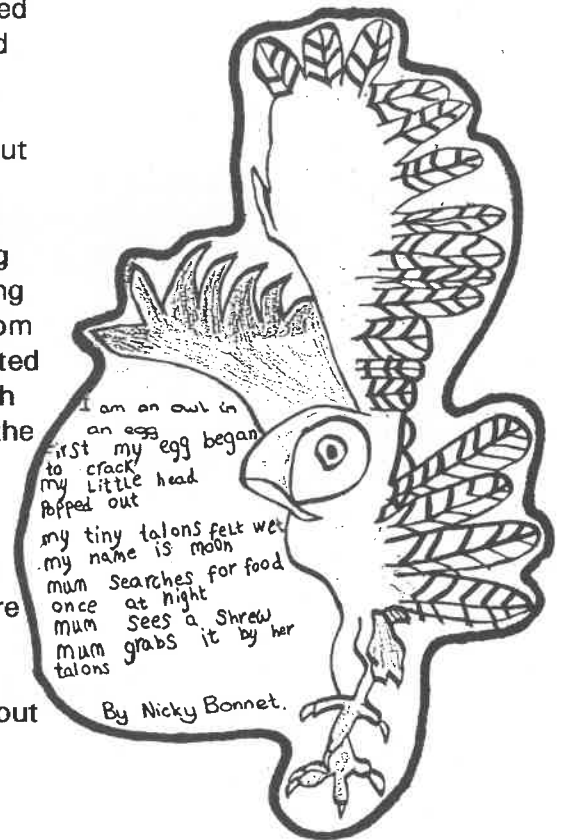 ed
d
ut
g
ng
om
ted
h
the
re
out
I am an owl in
an egg
First my egg began
to crack
my little head
Popped out
my tiny talons felt wet
my name is moon
mum searches for food
once at night
mum sees a shrew
mum grabs it by her
talons
By Nicky Bonnet.